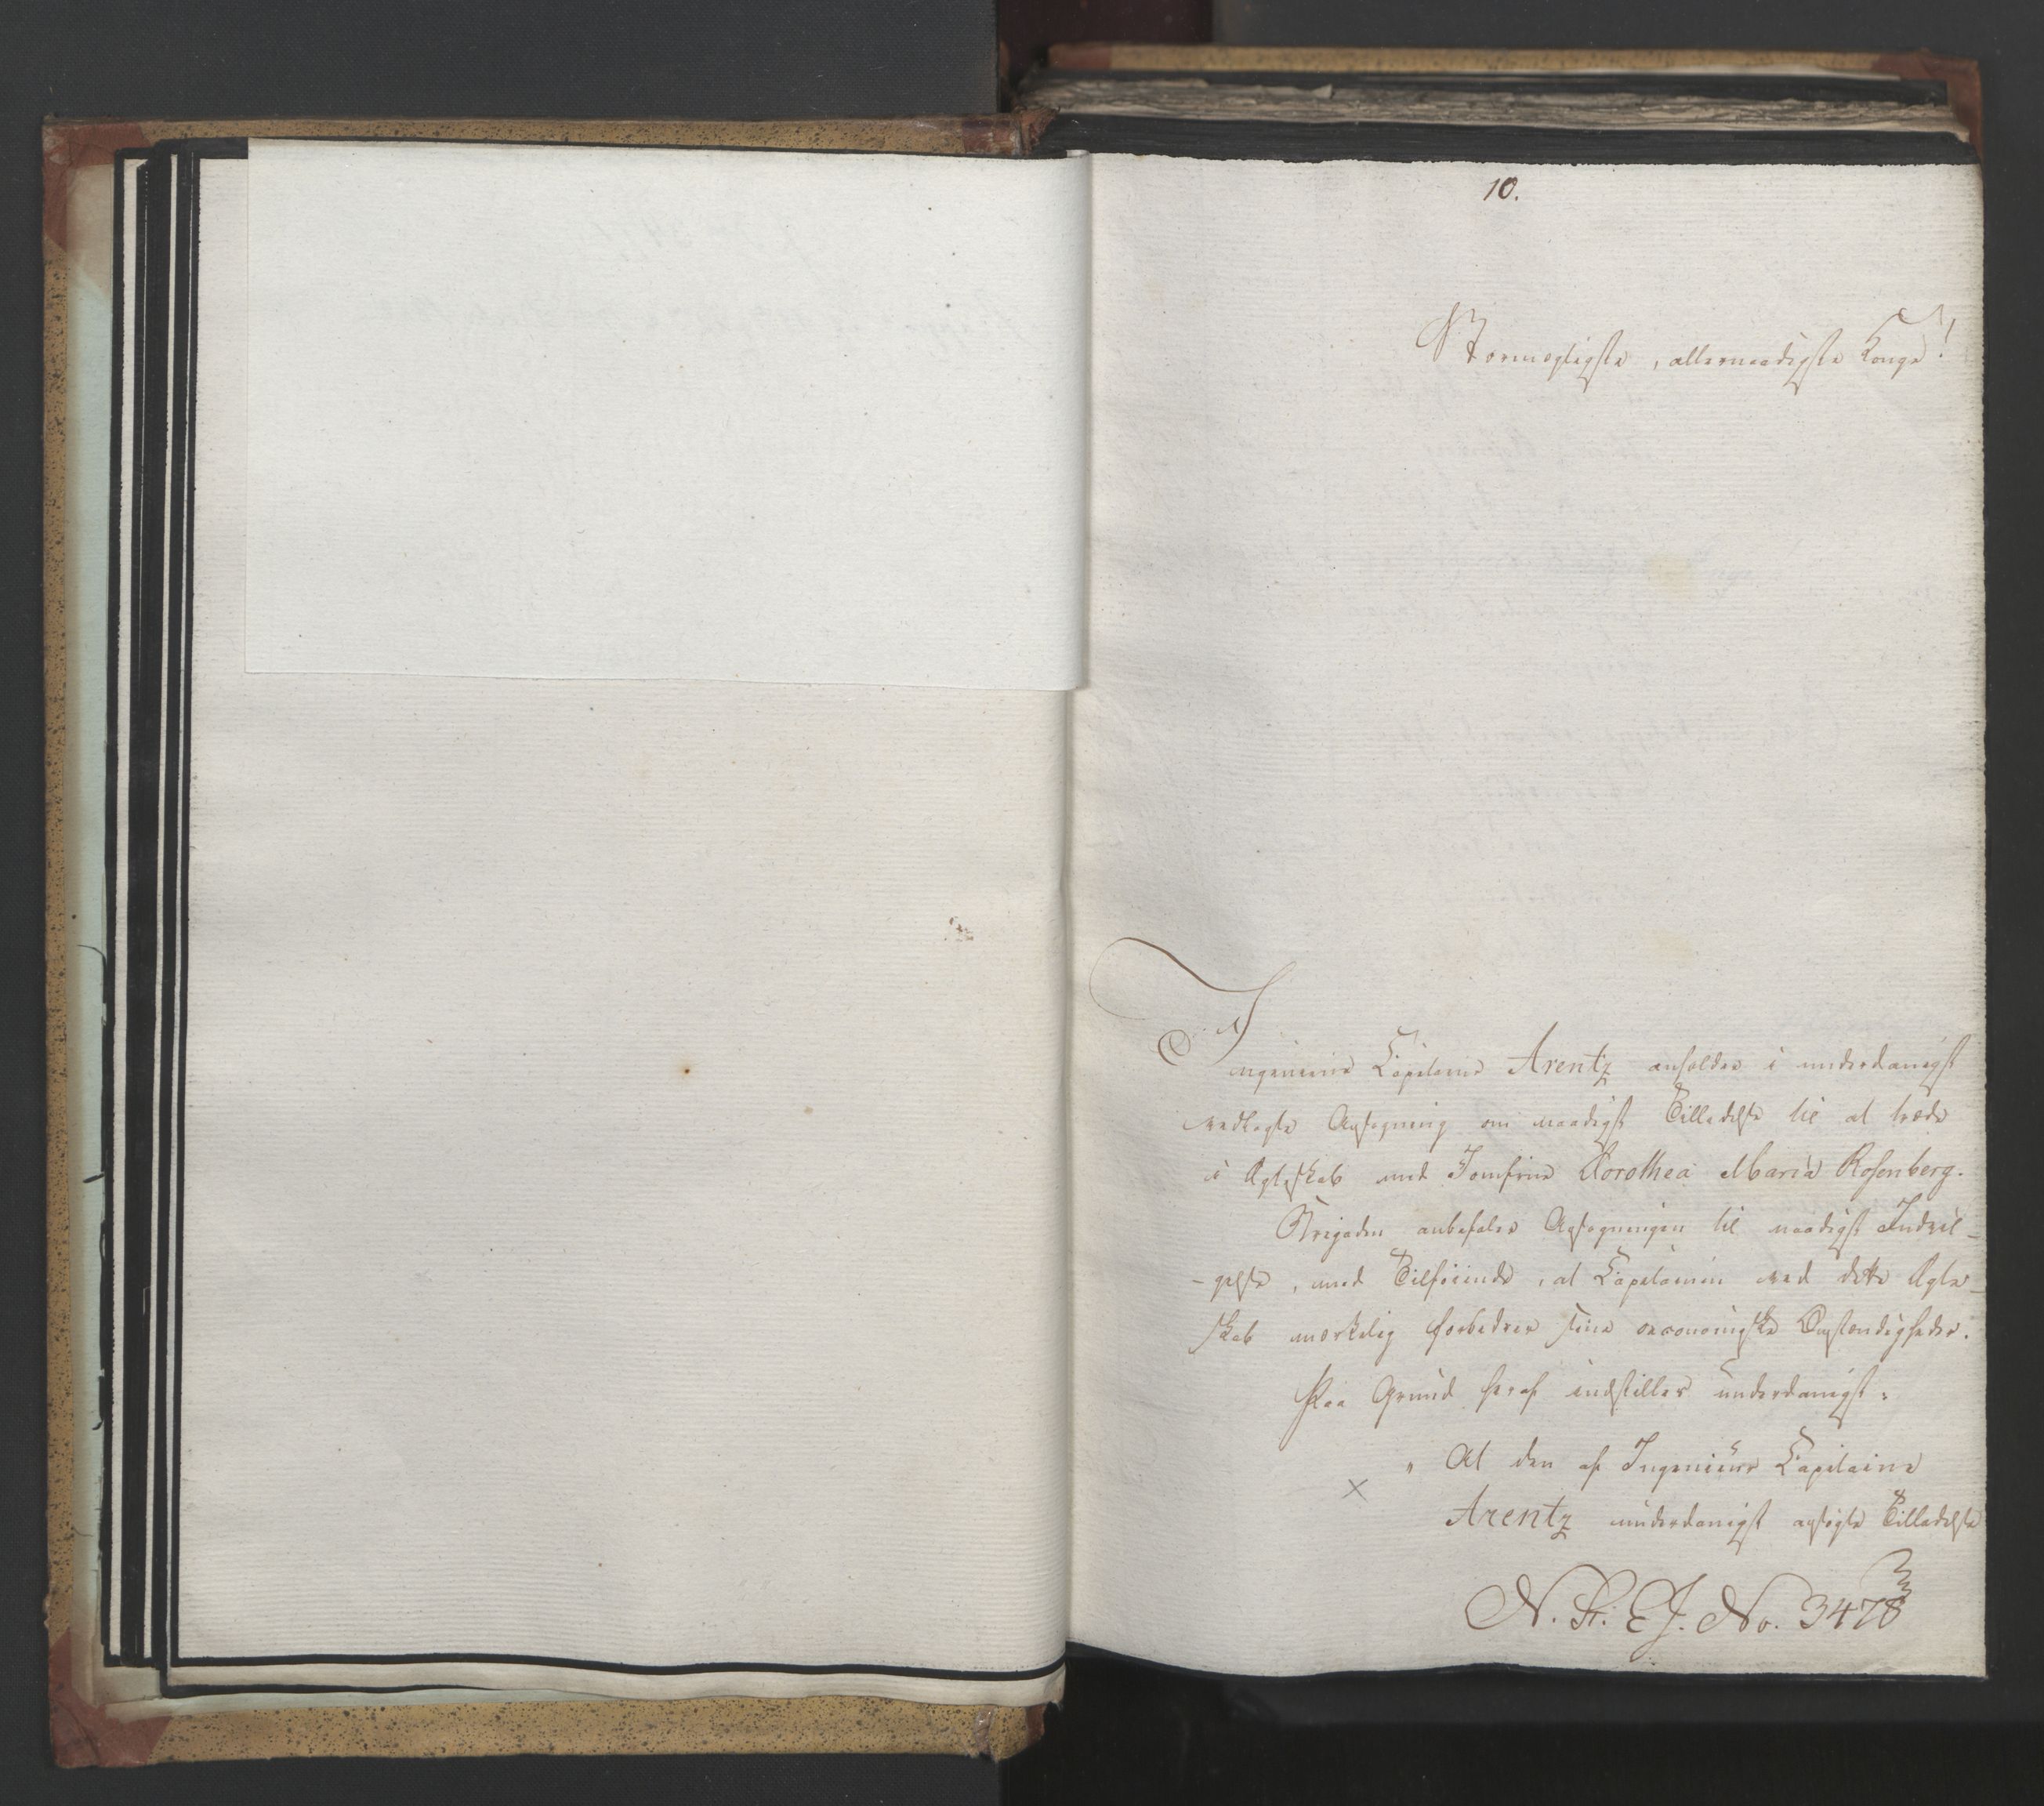 10.
Stormægtigste, allernaadigste Konge!
Ingenieur Capitaine Arentz anholder i underdanigst
vedlagte Ansøgning om naadigst Tilladelse til at træde
i Ægteskab med Jomfrue Dorothea Maria Rosenberg.
Brigaden anbefaler Ansøgningen til naadigst Indvil-
-gelse, med Tilføiende, at Capitainen ved dette Ægte-
skab mærkelig forbedrer sine oeconomiske Omstændigheder.
Paa Grund heraf indstilles underdanigst:
" At den af Ingenieur Capitaine
Arentz underdanigst ansøgte Tilladelse
N. St. E. J. No. 3478